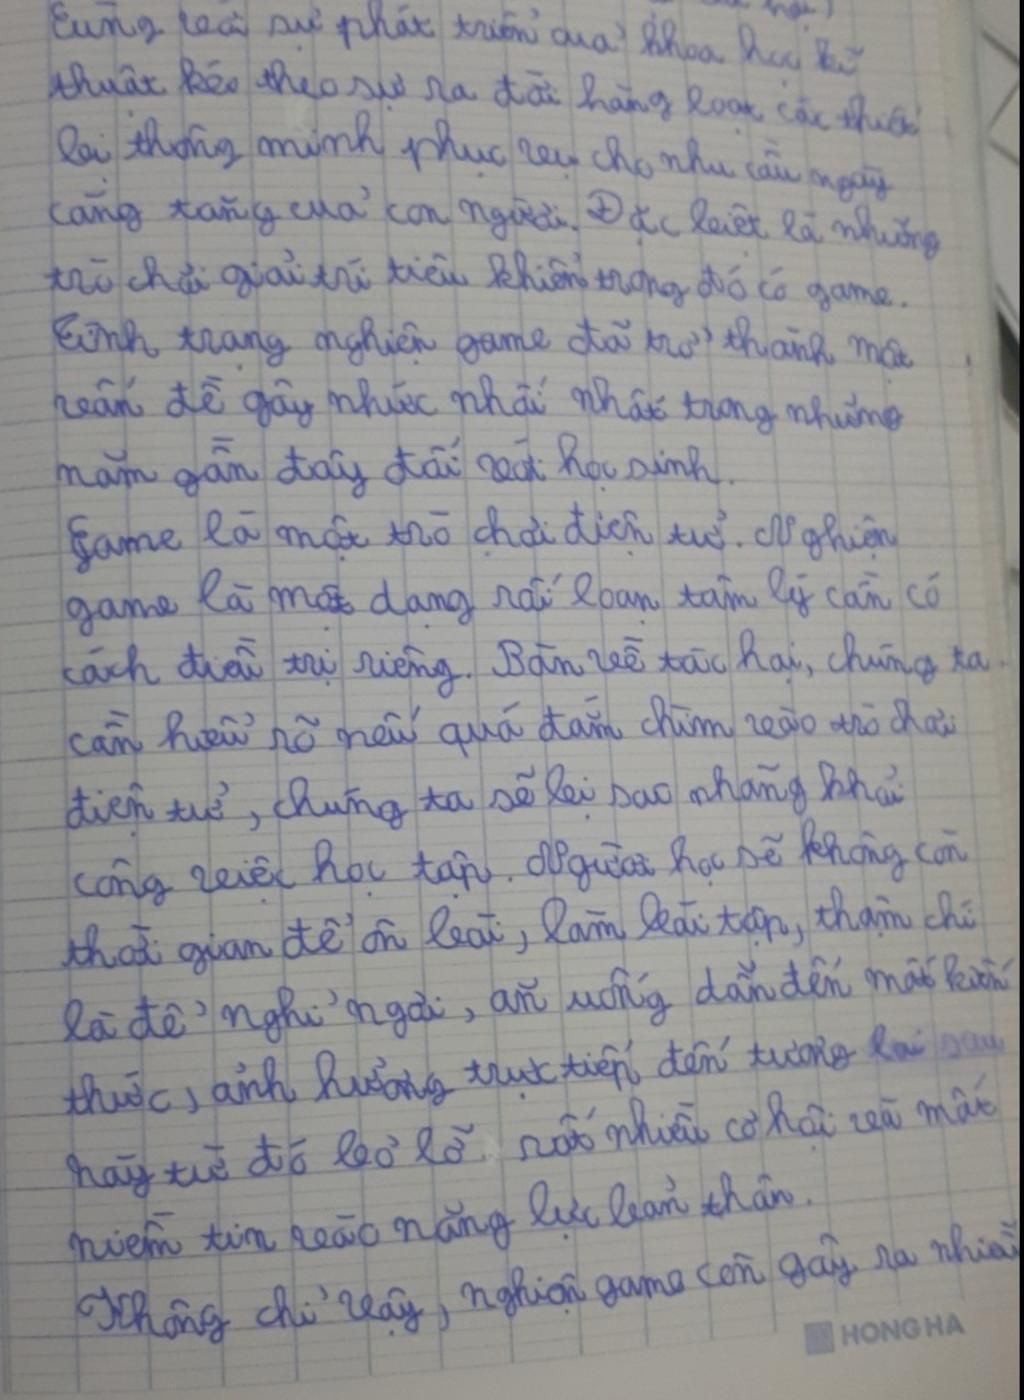 Cùng với sự phát triển của khoa học kĩ
thuật kéo theo sự ra đời hàng loạt các thiết
bị thông minh phục vụ cho nhu cầu ngày
càng tăng của con người. Đặc biệt là những
trò chơi giải trí tiêu khiển trong đó có game.
Tình trạng nghiện game đã trở thành một
vấn đề gây nhức nhối nhất trong những
năm gần đây đối với học sinh.
Game là một trò chơi điện tử. Nghiện
game là một dạng rối loạn tâm lý cần có
cách điều trị riêng. Bàn về tác hại, chúng ta
cần hiểu rõ nếu quá đắm chìm vào trò chơi
điện tử, chúng ta sẽ bị sao nhãng khỏi
công việc học tập. Người học sẽ không còn
thời gian để ôn bài, làm bài tập, thậm chí
là để nghỉ ngơi, ăn uống dẫn đến mất kiến
thức, ảnh hưởng trực tiếp đến tương lai sau
này từ đó bỏ lỡ rất nhiều cơ hội và mất
niềm tin vào năng lực bản thân.
Không chỉ vậy, nghiện game còn gây ra nhiều
HONG HA